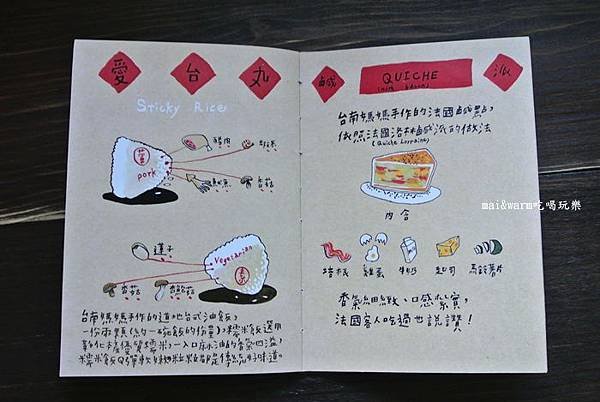 愛 台 丸
Sticky Rice
豬肉
蝦米
葷
pork
魷魚
香菇
蓮子
Vegetarian
素
香菇
杏鮑菇
台南媽媽手作的道地台式油飯,
一份兩顆(約一碗飯的份量),糯米飯選用
彰化檨優質糯米,一入口麻油的香氣四溢,
糯米飯QQ彈軟
鹹 QUICHE 派
台南媽媽手作的法國鹹點,
依照法國洛林鹹派的做法
(Quiche Lorraine)
內含
培根 雞蛋 牛奶 起司 馬鈴薯片
香氣細緻、口感紮實,
法國客人吃過也說讚!
mai&warm吃喝玩樂